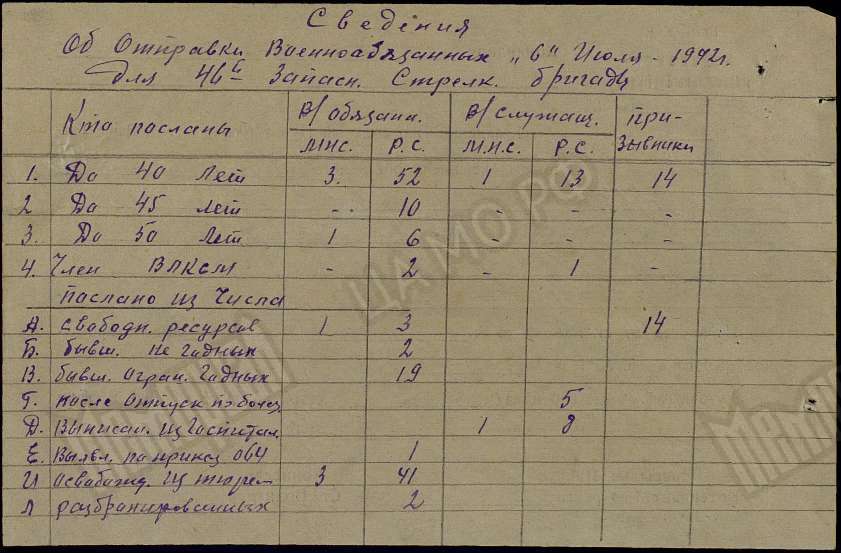 Сведения
Об Отправки Военнообязанных „6“ Июля - 1942г.
Для 46й Запасн. Стрелк. бригады
Кто посланы В/обязанн. В/служащ. При-зывники
М.Н.С. Р.С. М.Н.С. Р.С.
1. До 40 лет 3. 52 1 13 14
2 До 45 лет - 10 - - -
3. До 50 лет 1 6 - - -
4. Член ВЛКСМ - 2 - 1 -
Послано из Числа
А. Свободн. ресурсов 1 3 14
Б. бывш. не Годных 2
В. бывш. огран. Годных 19
Г. после Отпуск по болез. 5
Д. Выписан. из Госпитал. 1 8
Е. приказ 064 1
И освобожд. Из тюрем 3 41
Л разбронированных 2
ЦАМО РФ
Мемориал